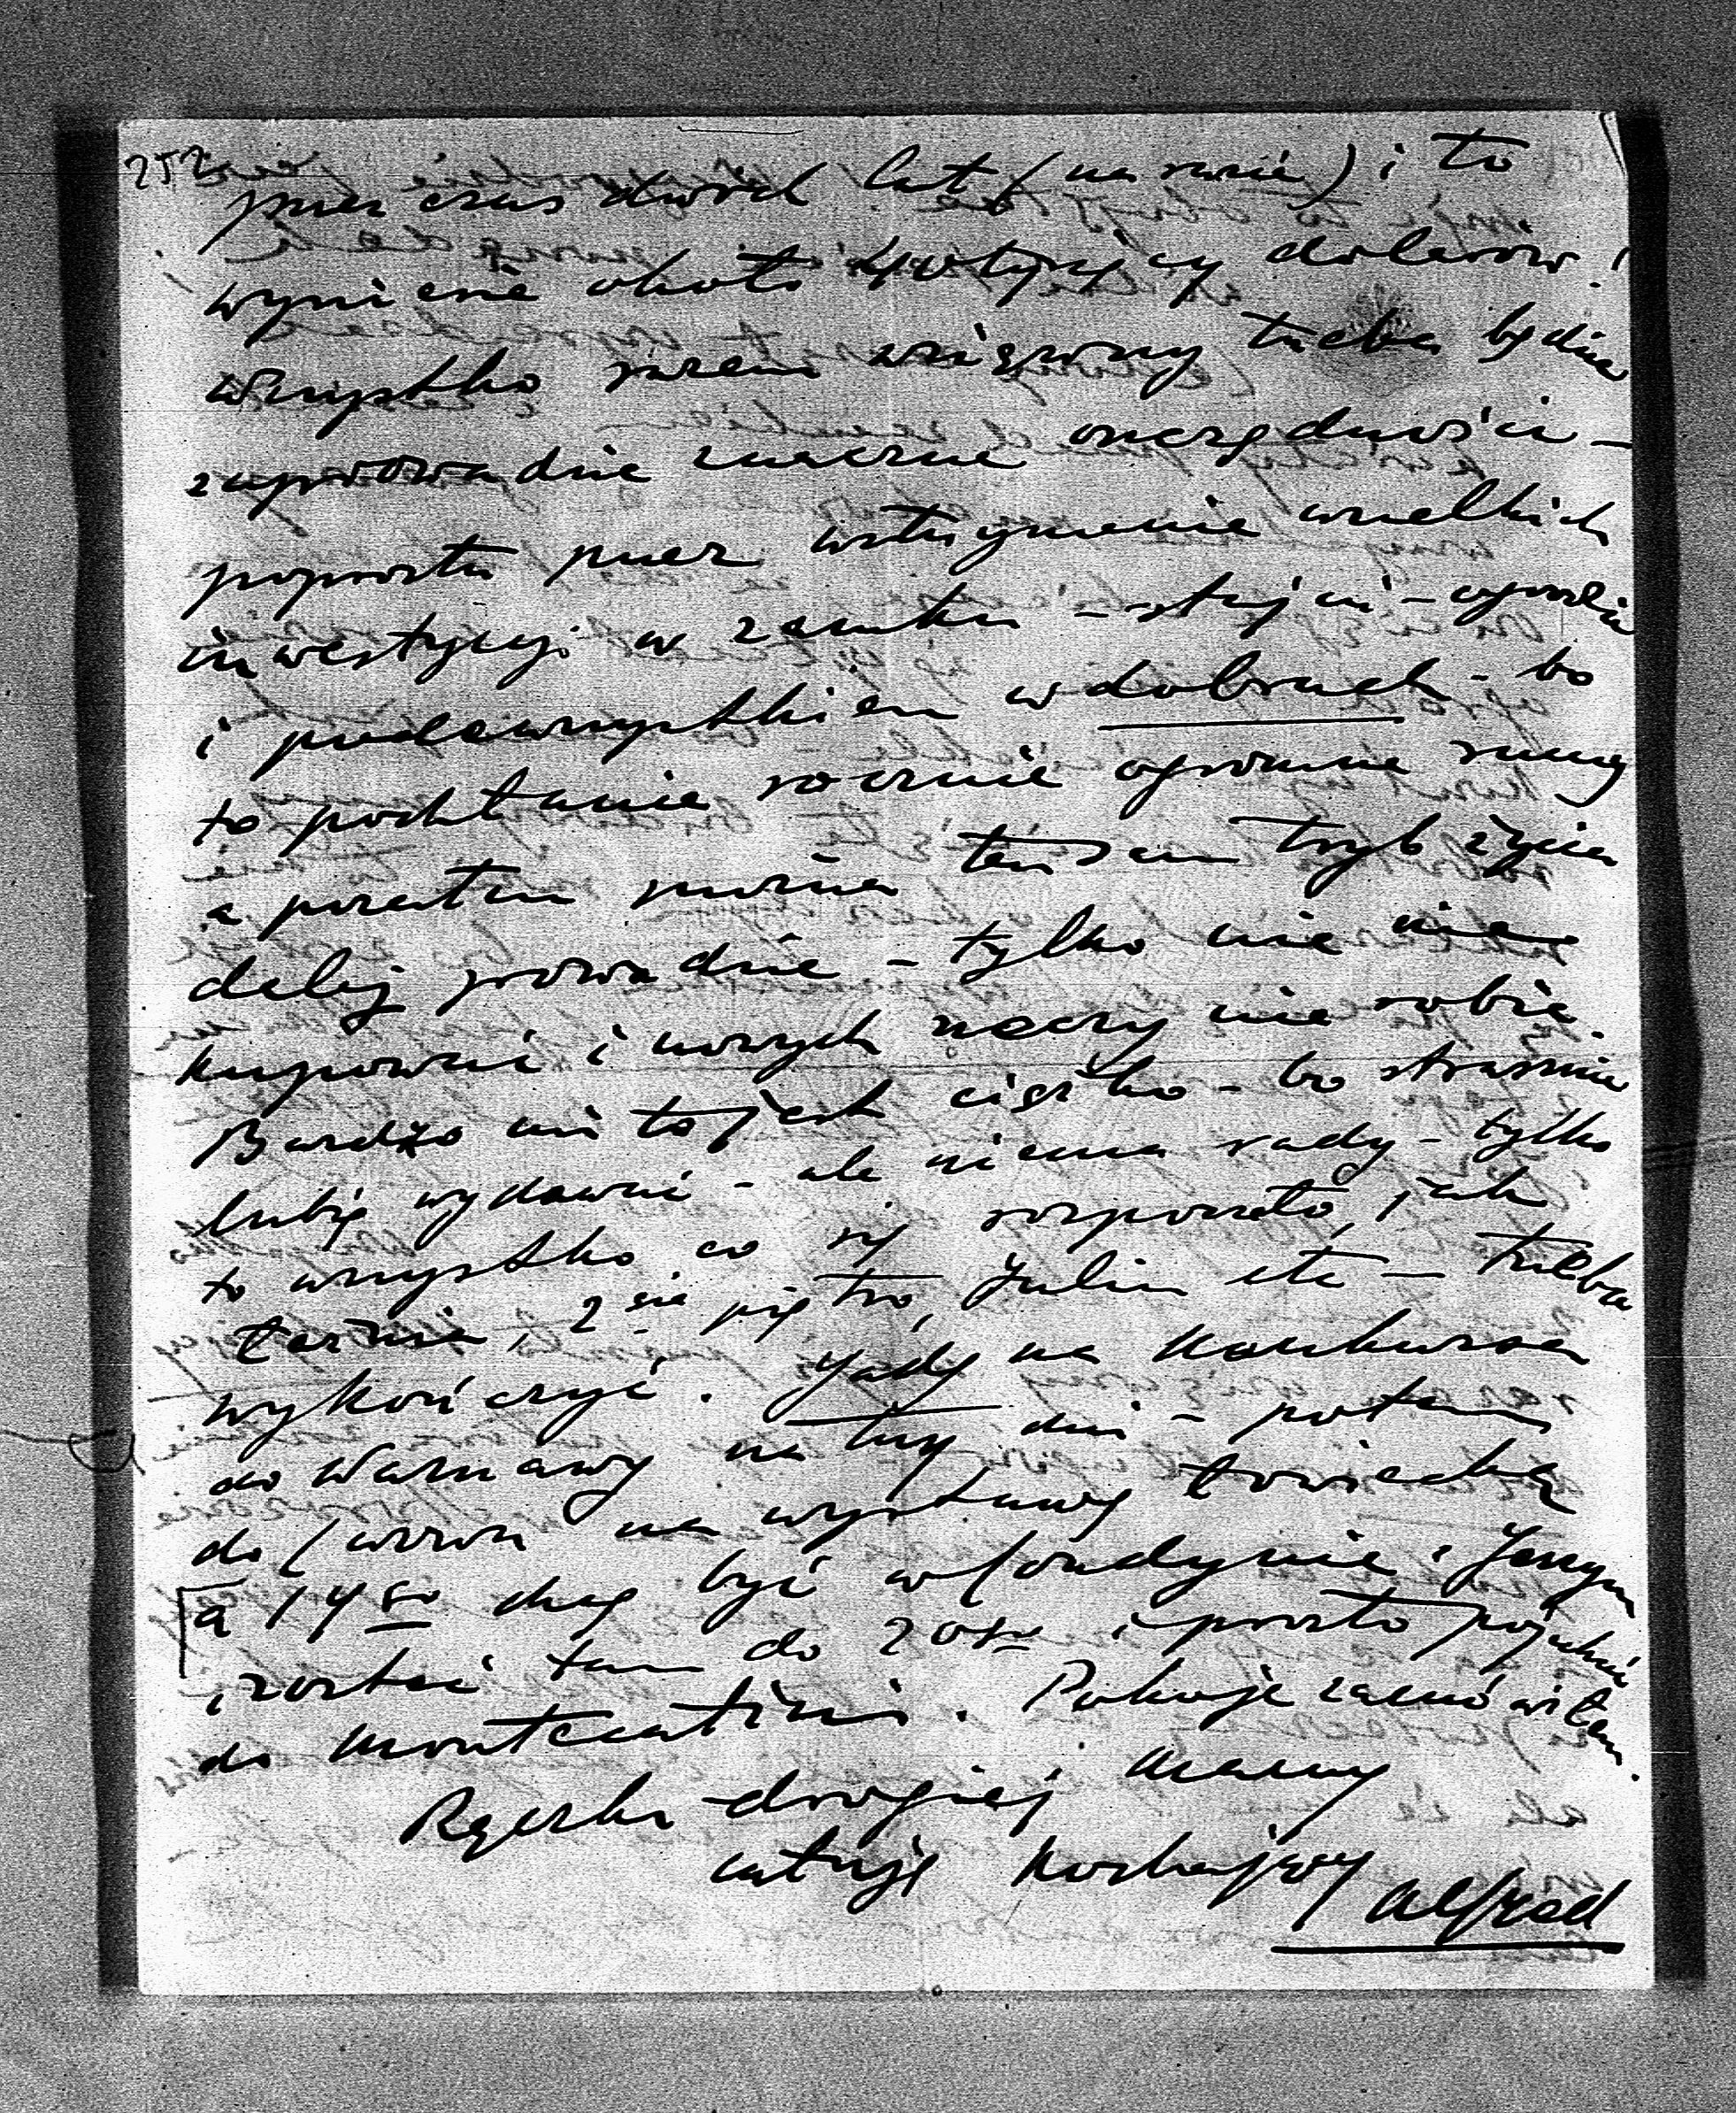 252
przez czas dwóch lat (na razie) i to
wyniesie około tysięcy dolarów i
wszystko razem wziąwszy trzeba będzie
zaprowadzić znaczne oszczędności –
poprostu przez wstrzymanie wszelkich
inwestycyj w zamku – stajni – ogrodzie
i przedewszystkiem w dobrach – bo
to pochłania rocznie ogromne sumy
a pozatem można ten sam tryb życia
dalej prowadzić – tylko nie
kupować i nowych rzeczy nie robić.
Bardzo mi to jest ciężko – bo strasznie
lubię wydawać – ale niema rady – tylko
to wszystko co się rozpoczęło, jak
2 gie piętro, Julin etc – trzeba
wykończyć. Jadę na konkursa
do Warszawy na trzy dni – potem
do Lwowa na wystawę łowiecką
a 14 go chcę być w Londynie i
i zostać tam do 20 go i prosto pojechać
do Montecatini. Pokoje zamówiłam.
Rączki drogiej Mamy
całuję kochający
Alfred